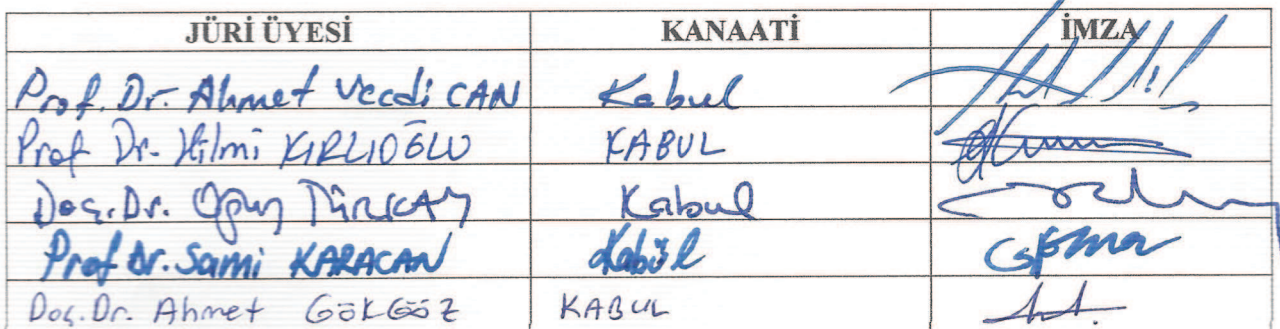 JÜRİ ÜYESİ KANAATİ İMZA
Prof. Dr. Ahmet Vecdi CAN Kabul
Prof Dr. Hilmi KIRLIOĞLU KABUL
Doç. Dr. Kabul
Prof Dr. Sami KARACAN Kabül
Doç. Dr. Ahmet GÖKGÖZ KABUL